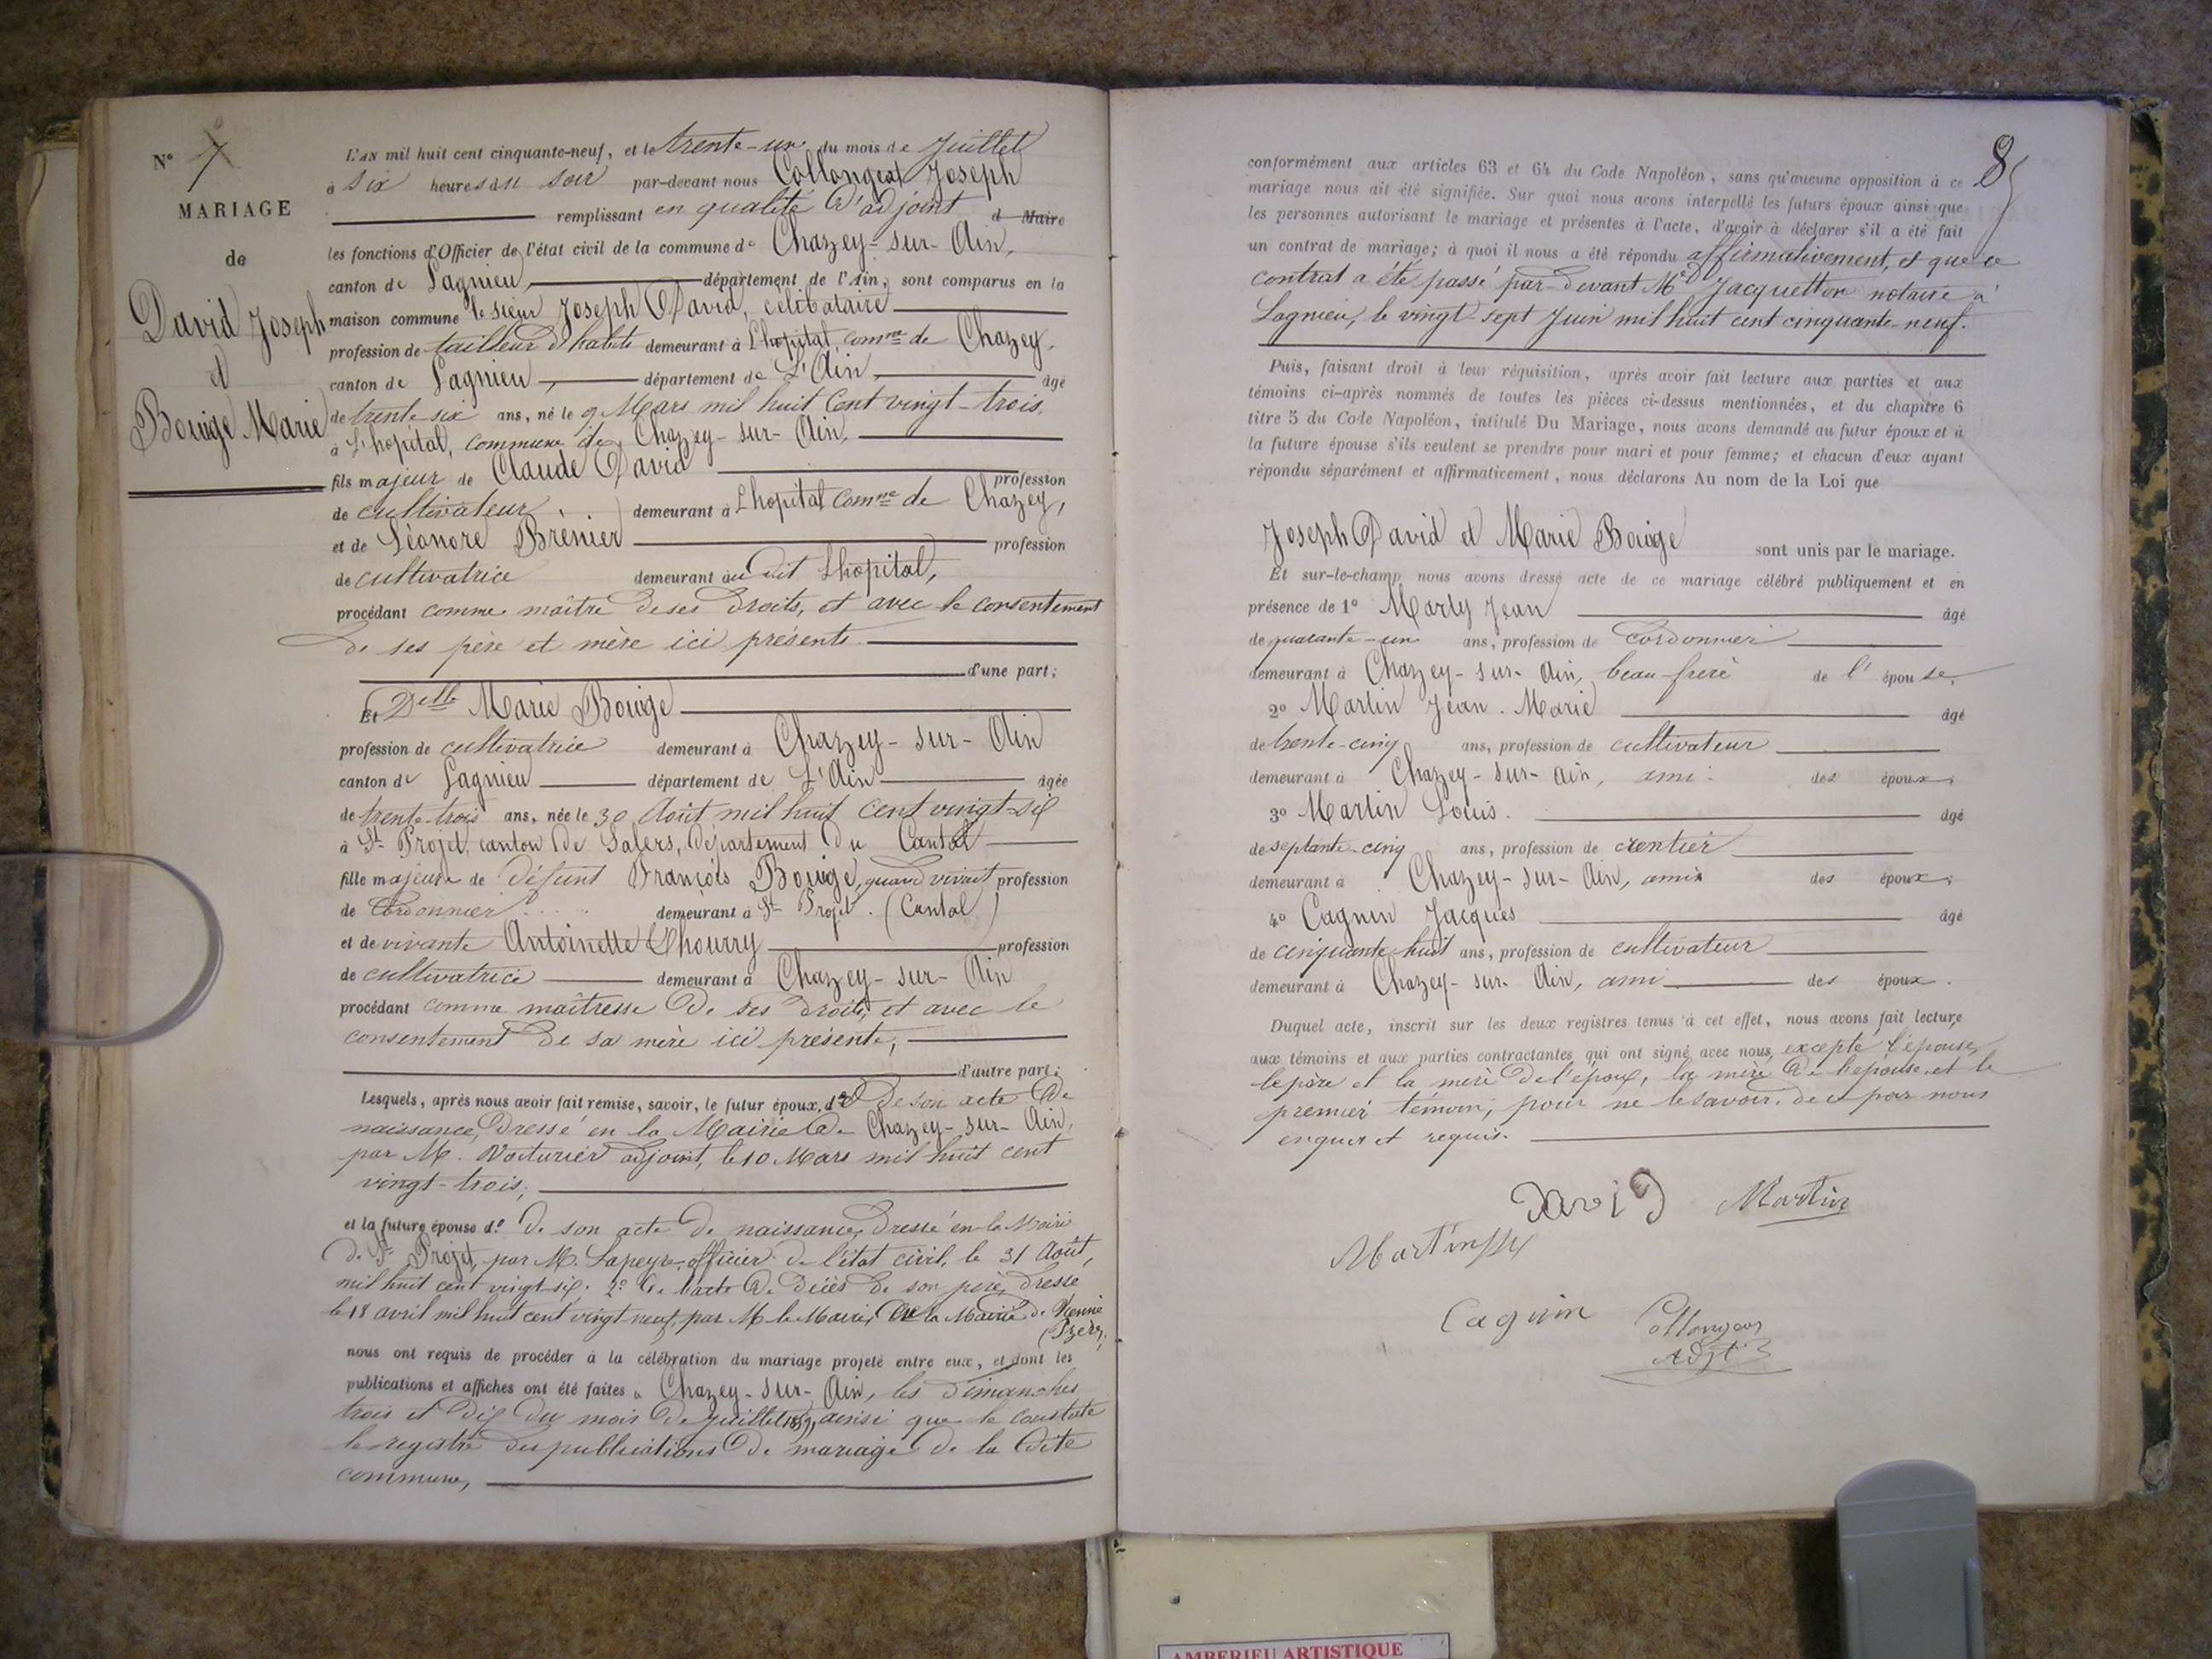 N° 7
MARIAGE
de
David Joseph
et
Bouige Marie
L'AN mil huit cent cinquante-neuf, et le trente-un du mois de Juillet
à six heures du soir par-devant nous Collongeat Joseph
remplissant en qualité d'adjoint d Maire
les fonctions d'Officier de l'état civil de la commune de Chazey-sur-Ain,
canton de Lagnieu, département de l'Ain, sont comparus en la
maison commune le sieur Joseph David, célibataire
profession de tailleur d'habits demeurant à L'hopital, comne de Chazey,
canton de Lagnieu, département de L'Ain, âgé
de trente-six ans, né le 9 Mars mil huit Cent vingt-trois,
à L'hopital, commune de Chazey-sur-Ain,
fils majeur de Claude David profession
de cultivateur, demeurant à L'hopital Comne de Chazey,
et de Léonore Brénier profession
de cultivatrice demeurant au dit Lhopital,
procédant comme maître de ses droits, et avec le consentement
de ses père et mère ici présents.
d'une part;
Et Delle Marie Bouige
profession de cultivatrice demeurant à Chazey-sur-Ain
canton de Lagnieu département de L'Ain âgée
de trente-trois ans, née le 30 Août mil huit cent vingt-six
à St Projet, canton de Salers, département du Cantal
fille majeure de défunt François Bouige, quand vivait profession
de Cordonnier demeurant à St Projet. (Cantal)
et de vivante Antoinette Chourry profession
de cultivatrice demeurant à Chazey-sur-Ain
procédant comme maîtresse de ses droits, et avec le
consentement de sa mère ici présente,
d'autre part;
Lesquels, après nous avoir fait remise, savoir, le futur époux, 1° de son acte de
naissance, dressé en la Mairie de Chazey-sur-Ain,
par M. Voiturier adjoint, le 10 Mars mil huit cent
vingt-trois;
et la future épouse 1° de son acte de naissance, dressé en la Mairie
de St Projet, par M. Lapeyre, officier de l'état civil, le 31 Août,
mil huit cent vingt-six. 2° de l'acte de décès de son père, dressé
le 18 avril mil huit cent vingt neuf, par M le Maire, de la Mairie de Vienne
(Isère),
nous ont requis de procéder à la célébration du mariage projeté entre eux, et dont les
publications et affiches ont été faites à Chazey-sur-Ain, les dimanches
trois et dix du mois de Juillet 1859, ainsi que le constate
le registre des publications de mariage de la dite
commune,
8
conformément aux articles 63 et 64 du Code Napoléon, sans qu'aucune opposition à ce
mariage nous ait été signifiée. Sur quoi nous avons interpellé les futurs époux ainsi que
les personnes autorisant le mariage et présentes à l'acte, d'avoir à déclarer s'il a été fait
un contrat de mariage; à quoi il nous a été répondu affirmativement, et que ce
contrat a été passé par-devant Me Jacquetton notaire à
Lagnieu, le vingt-sept Juin mil huit cent cinquante-neuf.
Puis, faisant droit à leur réquisition, après avoir fait lecture aux parties et aux
témoins ci-après nommés de toutes les pièces ci-dessus mentionnées, et du chapitre 6
titre 5 du Code Napoléon, intitulé Du Mariage, nous avons demandé au futur époux et à
la future épouse s'ils veulent se prendre pour mari et pour femme; et chacun d'eux ayant
répondu séparément et affirmativement, nous déclarons Au nom de la Loi que
Joseph David et Marie Bouige sont unis par le mariage.
Et sur-le-champ nous avons dressé acte de ce mariage célébré publiquement et en
présence de 1° Marly Jean âgé
de quarante-un ans, profession de Cordonnier
demeurant à Chazey-sur-Ain, beau-frère de l'épouse,
2° Martin Jean-Marie âgé
de trente-cinq ans, profession de cultivateur
demeurant à Chazey-sur-Ain, ami des époux;
3° Martin Louis. âgé
de septante-cinq ans, profession de rentier
demeurant à Chazey-sur-Ain, ami des époux;
4° Cagnin Jacques âgé
de cinquante-huit ans, profession de cultivateur
demeurant à Chazey-sur-Ain, ami des époux.
Duquel acte, inscrit sur les deux registres tenus à cet effet, nous avons fait lecture
aux témoins et aux parties contractantes qui ont signé avec nous, excepté l'épouse,
le père et la mère de l'époux, la mère de l'épouse et le
premier témoin, pour ne le savoir, de ce par nous
enquis et requis.
David Martin
Martin
Cagnin Collongeat
Adjt
AMBERIEU ARTISTIQUE